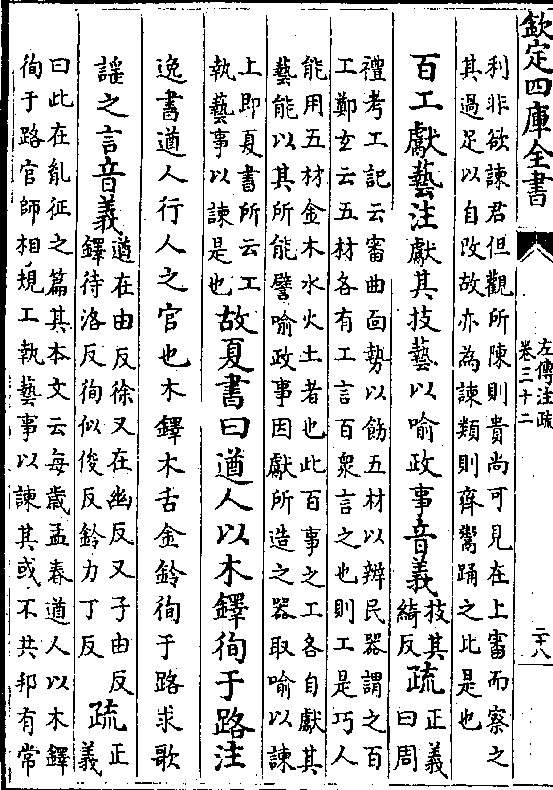 欽定四庫全書
左傳注疏
卷三十二
二十八
利非欲諫君但觀所陳則貴尚可見在上審而察之
其過足以自改故亦為諫類則齊鬻踊之比是也
百工獻藝注獻其技藝以喻政事音義
技其
綺反
疏
正義
曰周
禮考工記云審曲面勢以飭五材以辨民器謂之百
工鄭玄云五材各有工言百衆言之也則工是巧人
能用五材金木水火土者也此百事之工各自獻其
藝能以其所能譬喻政事因獻所造之器取喻以諫
上即夏書所云工
執藝事以諫是也
故夏書曰遒人以木鐸徇于路注
逸書遒人行人之官也木鐸木舌金鈴徇于路求歌
謡之言音義
遒在由反徐又在幽反又子由反
鐸待洛反徇似俊反鈴力丁反
疏
正
義
曰此在胤征之篇其本文云每歲孟春遒人以木鐸
徇于路官師相規工執藝事以諫其或不共邦有常